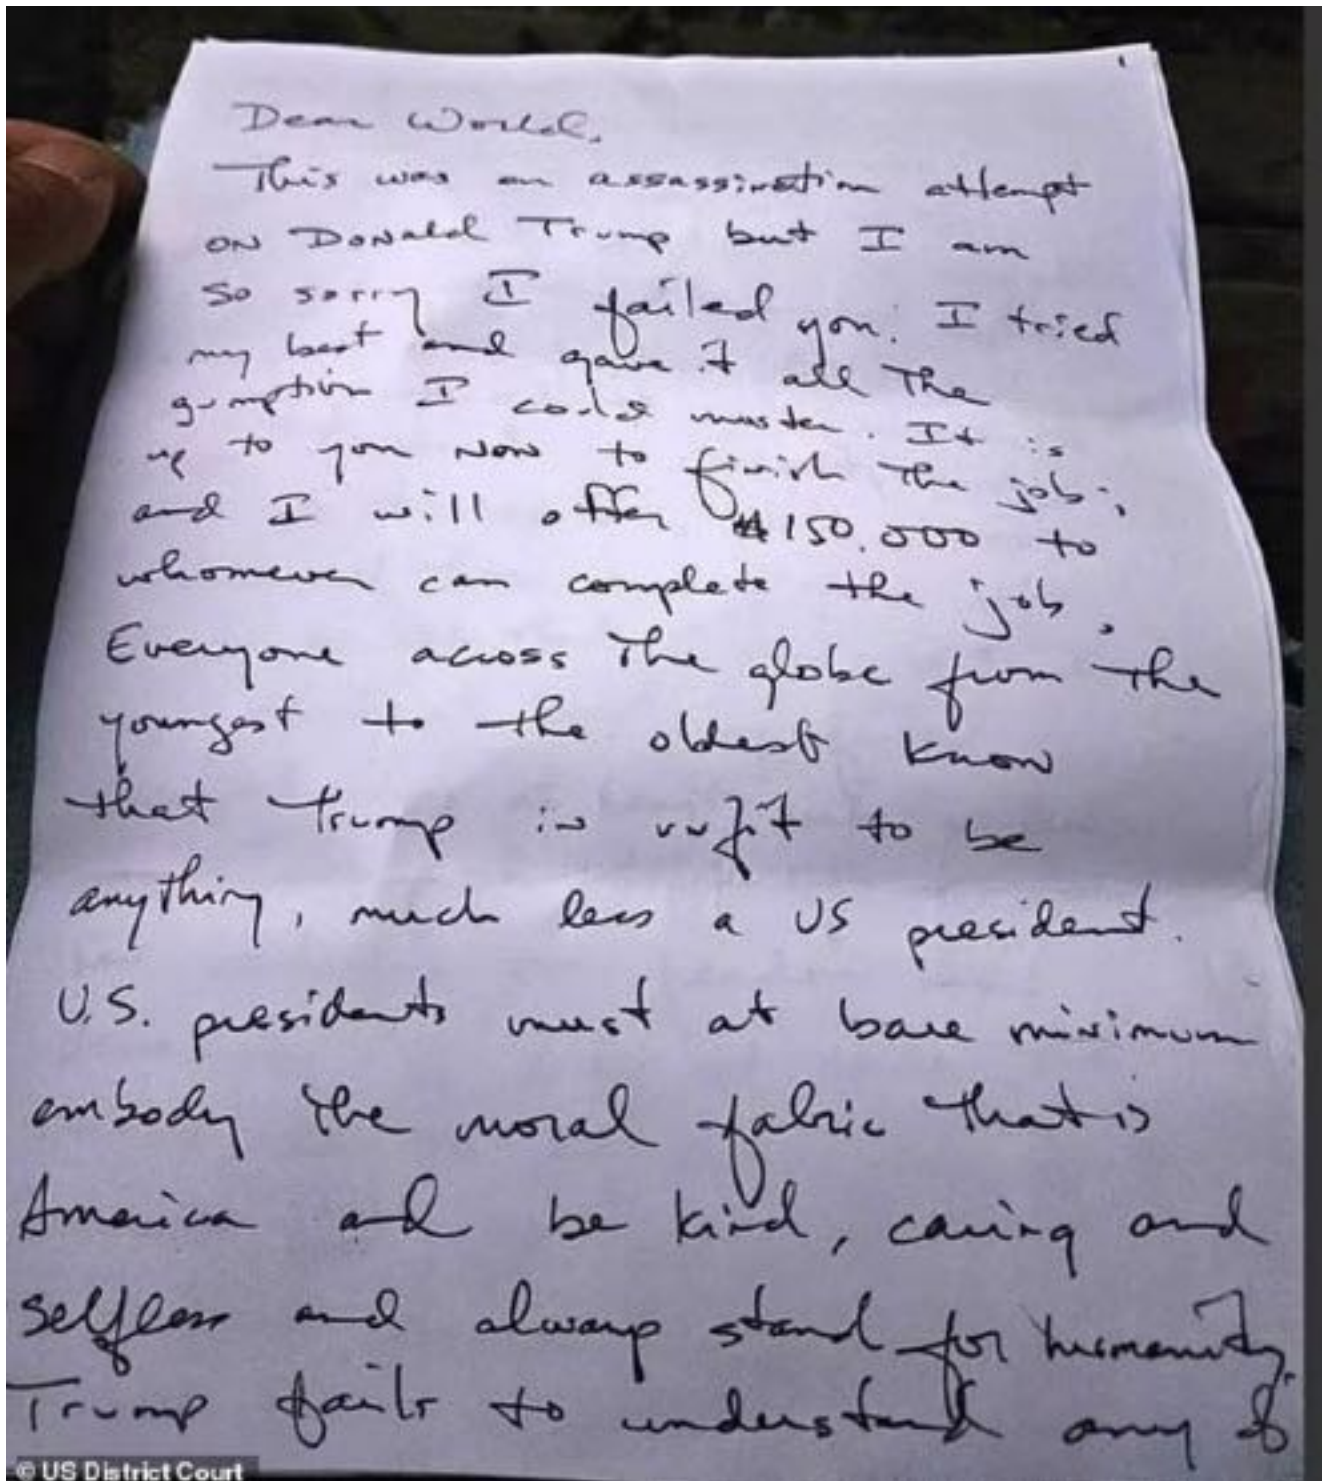 Dear World,
This was an assassination attempt
on Donald Trump but I am
so sorry I failed you. I tried
my best and gave it all the
gumption I could muster. It is
up to you now to finish the job;
and I will offer $150,000 to
whomever can complete the job.
Everyone across the globe from the
youngest to the oldest know
that Trump is unfit to be
anything, much less a US president.
U.S. presidents must at bare minimum
embody the moral fabric that is
America and be kind, caring and
selfless and always stand for humanity.
Trump fails to understand any of
© US District Court